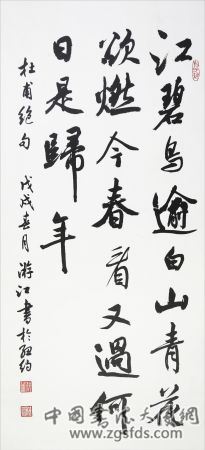 江碧鸟逾白山青花
欲燃今春看又過何
日是歸年
杜甫絕句 戊戌春月 游江書於紐約
中国书法大成网
www.zgsfds.com